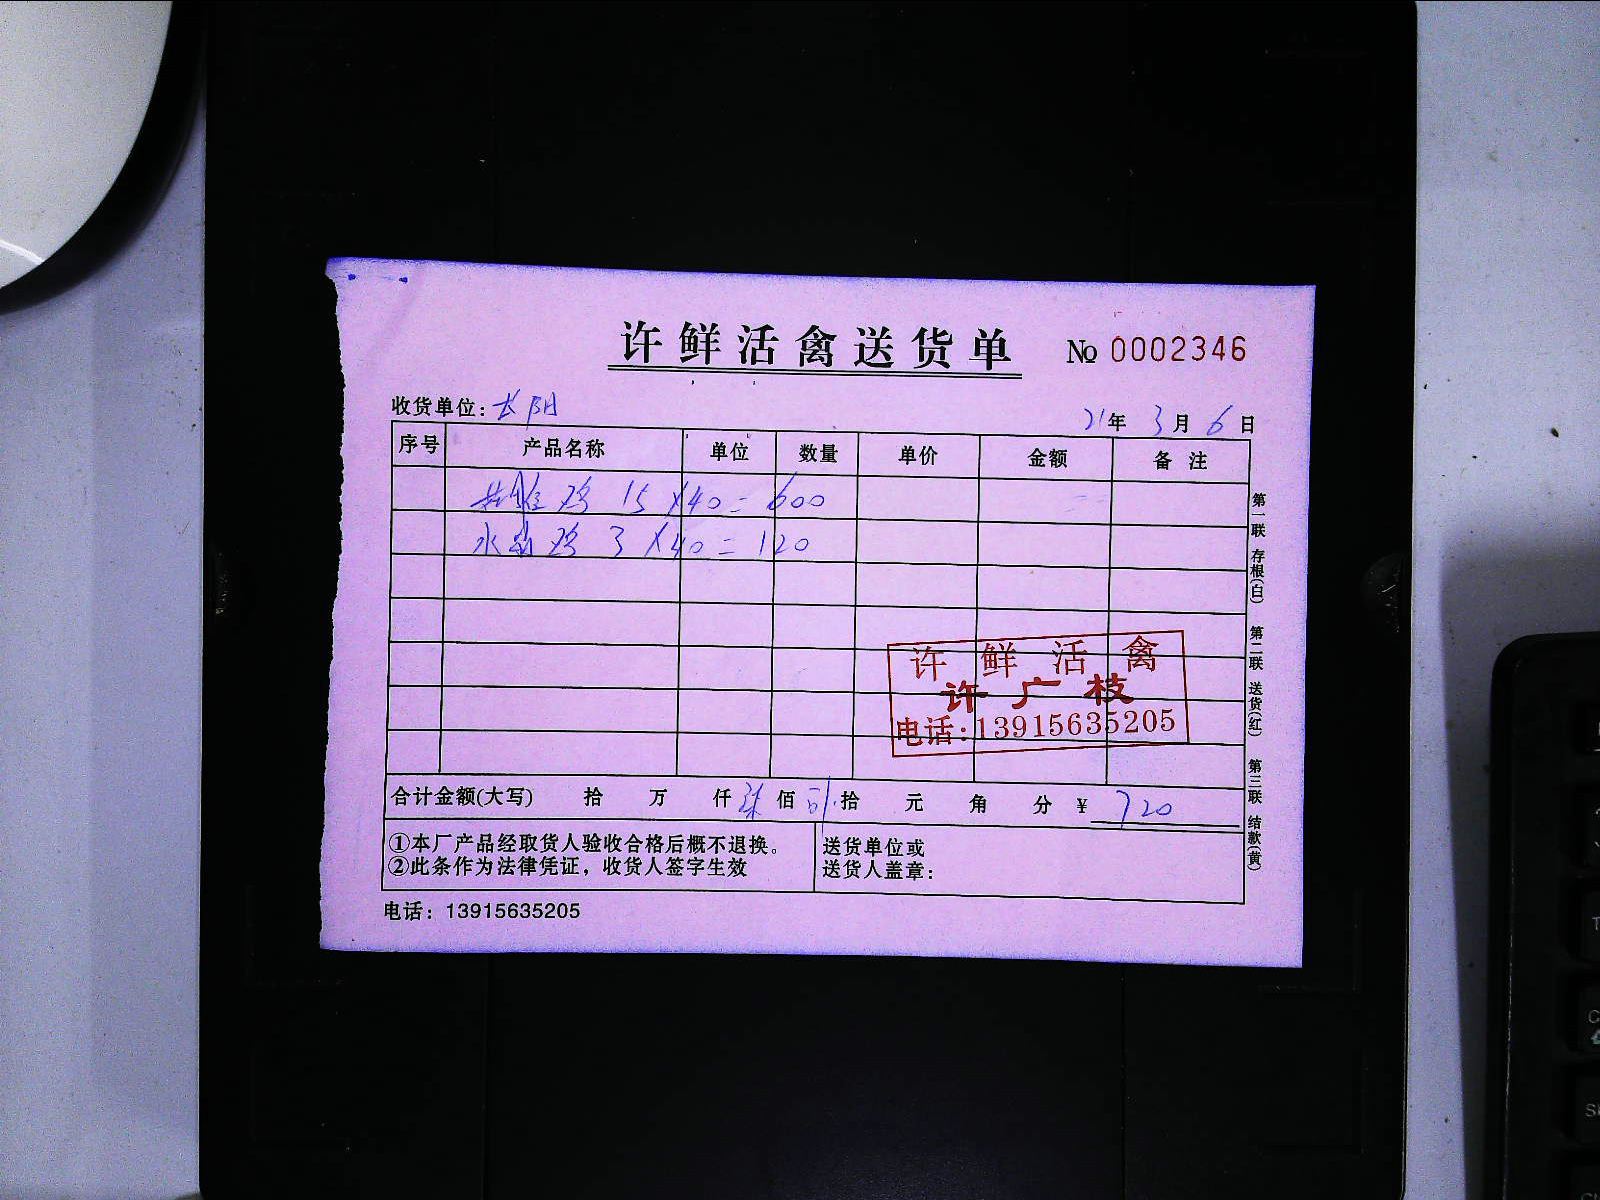 许鲜活禽送货单 № 0002346
收货单位: 长阳 21年 3月 6日
序号 产品名称 单位 数量 单价 金额 备注
鸡 15×40=600
水晶鸡 3×40=120
许鲜活禽
许广枝
电话:13915635205
合计金额(大写) 拾 万 仟 柒佰 拾 元 角 分 ¥ 720
①本厂产品经取货人验收合格后概不退换。
②此条作为法律凭证，收货人签字生效
送货单位或
送货人盖章:
电话: 13915635205
第一联 存根(白) 第二联 送货(红) 第三联 结款(黄)